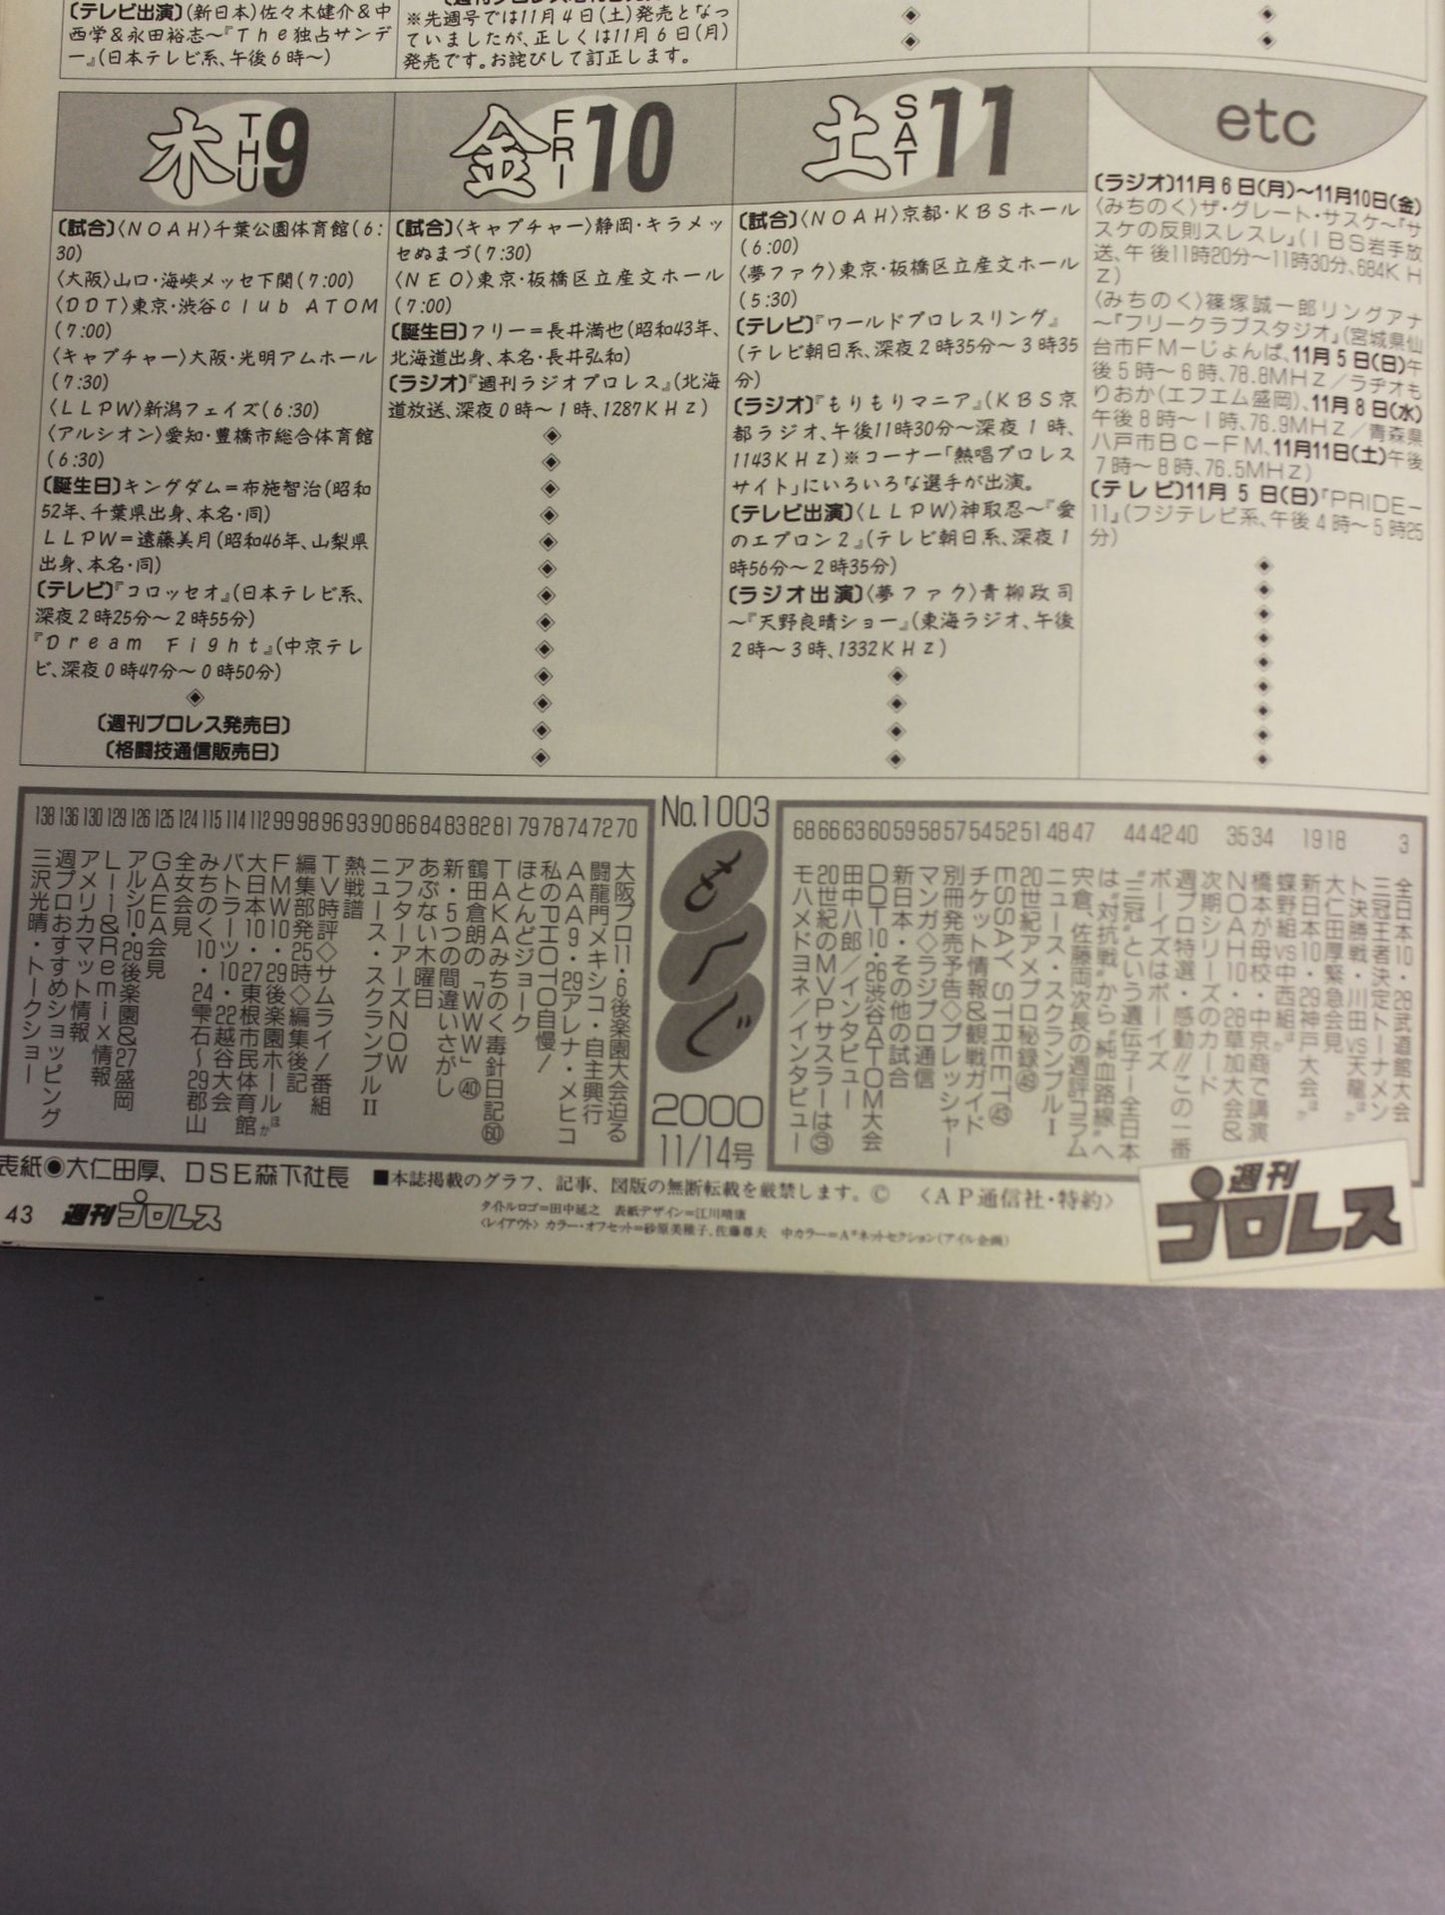 〔テレビ出演〕(新日本)佐々木健介＆中
西学＆永田裕志～『Ｔｈｅ独占サンデ
ー』(日本テレビ系、午後６時～)
※先週号では11月４日(土)発売となっ
ていましたが、正しくは11月６日(月)
発売です。お詫びして訂正します。
木 THU 9
〔試合〕〈ＮＯＡＨ〉千葉公園体育館(６:
30)
〈大阪〉山口・海峡メッセ下関(７:00)
〈ＤＤＴ〉東京・渋谷ｃｌｕｂ ＡＴＯＭ
(７:00)
〈キャプチャー〉大阪・光明アムホール
(７:30)
〈ＬＬＰＷ〉新潟フェイズ(６:30)
〈アルシオン〉愛知・豊橋市総合体育館
(６:30)
〔誕生日〕キングダム＝布施智治(昭和
52年、千葉県出身、本名・同)
ＬＬＰＷ＝遠藤美月(昭和46年、山梨県
出身、本名・同)
〔テレビ〕『コロッセオ』(日本テレビ系、
深夜２時25分～２時55分)
『Ｄｒｅａｍ Ｆｉｇｈｔ』(中京テレ
ビ、深夜０時47分～０時50分)
◈
〔週刊プロレス発売日〕
〔格闘技通信販売日〕
金 FRI 10
〔試合〕〈キャプチャー〉静岡・キラメッ
セぬまづ(７:30)
〈ＮＥＯ〉東京・板橋区立産文ホール
(７:00)
〔誕生日〕フリー＝長井満也(昭和43年、
北海道出身、本名・長井弘和)
〔ラジオ〕『週刊ラジオプロレス』(北海
道放送、深夜０時～１時、1287ＫＨｚ)
土 SAT 11
〔試合〕〈ＮＯＡＨ〉京都・ＫＢＳホール
(６:00)
〈夢ファク〉東京・板橋区立産文ホール
(５:30)
〔テレビ〕『ワールドプロレスリング』
(テレビ朝日系、深夜２時35分～３時35
分)
〔ラジオ〕『もりもりマニア』(ＫＢＳ京
都ラジオ、午後11時30分～深夜１時、
1143ＫＨｚ)※コーナー「熱唱プロレス
サイト」にいろいろな選手が出演。
〔テレビ出演〕〈ＬＬＰＷ〉神取忍～『愛
のエプロン２』(テレビ朝日系、深夜１
時56分～２時35分)
〔ラジオ出演〕〈夢ファク〉青柳政司
～『天野良晴ショー』(東海ラジオ、午後
２時～３時、1332ＫＨｚ)
etc
〔ラジオ〕11月６日(月)～11月10日(金)
〈みちのく〉ザ・グレート・サスケ～『サ
スケの反則スレスレ』(ＩＢＳ岩手放
送、午後11時20分～11時30分、684ＫＨ
Ｚ)
〈みちのく〉篠塚誠一郎リングアナ
～『フリークラブスタジオ』(宮城県仙
台市ＦＭ－じょんぱ、11月５日(日)午
後５時～６時、78.8ＭＨＺ／ラヂオも
りおか(エフエム盛岡)、11月８日(水)
午後８時～１時、76.9ＭＨＺ／青森県
八戸市ＢＣ－ＦＭ、11月11日(土)午後
７時～８時、76.5ＭＨＺ)
〔テレビ〕11月５日(日)『PRIDE－
11』(フジテレビ系、午後４時～５時25
分)
3 全日本10・28武道館大会
三冠王者決定トーナメン
ト決勝戦・川田vs天龍ほか
18 大仁田厚緊急会見
19 新日本10・29神戸大会
蝶野組vs中西組ほか
34 橋本が母校・中京商で講演
35 NOAH10・28草加大会＆
次期シリーズのカード
40 週プロ特選・感動!!この一番
42 ボーイズはボーイズ
44 “三冠”という遺伝子－全日本
は“対抗戦”から“純血路線”へ
47 宍倉、佐藤両次長の週評コラム
48 ニュース・スクランブルⅠ
51 20世紀アメプロ秘録㊾
52 ESSAY STREET㊷
54 チケット情報＆観戦ガイド
57 別冊発売予告◇プレッシャー
58 マンガ◇ラジプロ通信
59 新日本・その他の試合
60 DDT10・26渋谷ATOM大会
63 田中八郎／インタビュー
66 20世紀のMVPサスラーは③
68 モハメドヨネ／インタビュー
No.1003
もくじ
2000
11/14号
70 大阪プロ11・6後楽園大会迫る
72 闘龍門メキシコ・自主興行
74 AAA9・29アレナ・メヒコ
78 私のPHOTO自慢／
79 ほとんどジョーク
81 TAKAみちのく毒針日記㊿
82 鶴田倉朗の「WWW」㊵
83 新・5つの間違いさがし
84 あぶない木曜日
86 アフター・アーズNOW
90 ニュース・スクランブルⅡ
93 熱戦譜
96 TV時評◇サムライ／番組
98 編集部発25時◇編集後記
99 FMW10・29後楽園ホールほか
112 大日本10・27東根市民体育館
114 バトラーツ10・22越谷大会
115 みちのく10・24雫石～29郡山
124 全女会見
125 GAEA会見
126 アルシ10・29後楽園＆27盛岡
129 L－1＆Remix情報
130 アメリカマット情報
136 週プロおすすめショッピング
138 三沢光晴・トークショー
表紙◉大仁田厚、ＤＳＥ森下社長
■本誌掲載のグラフ、記事、図版の無断転載を厳禁します。© 〈ＡＰ通信社・特約〉
タイトルロゴ＝田中延之 表紙デザイン＝江川晴康
〈レイアウト〉カラー・オフセット＝砂原美穂子、佐藤尊夫 中カラー＝Ａ*ネットセクション(アイル企画)
43 週刊プロレス
週刊プロレス